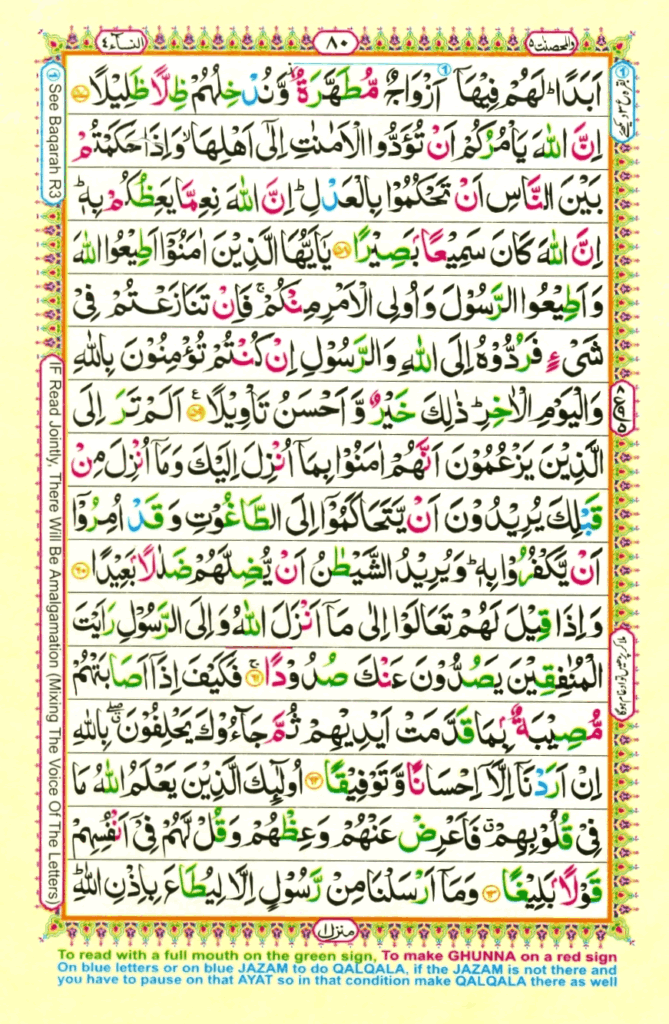 النسآء٤
٨٠
والمحصنت٥
اَبَدًا ؕ لَهُمْ فِيْهَاۤ اَزْوَاجٌ مُّطَهَّرَةٌ ؗ وَّنُدْخِلُهُمْ ظِلًّا ظَلِيْلًا ﴿۵۷﴾
اِنَّ اللّٰهَ يَاْمُرُكُمْ اَنْ تُؤَدُّوا الْاَمٰنٰتِ اِلٰۤى اَهْلِهَا ۙ وَاِذَا حَكَمْتُمْ
بَيْنَ النَّاسِ اَنْ تَحْكُمُوْا بِالْعَدْلِ ؕ اِنَّ اللّٰهَ نِعِمَّا يَعِظُكُمْ بِهٖ ؕ
اِنَّ اللّٰهَ كَانَ سَمِيْعًۢا بَصِيْرًا ﴿۵۸﴾ يٰۤاَيُّهَا الَّذِيْنَ اٰمَنُوْۤا اَطِيْعُوا اللّٰهَ
وَاَطِيْعُوا الرَّسُوْلَ وَاُولِى الْاَمْرِ مِنْكُمْ ۚ فَاِنْ تَنَازَعْتُمْ فِىْ
شَىْءٍ فَرُدُّوْهُ اِلَى اللّٰهِ وَالرَّسُوْلِ اِنْ كُنْتُمْ تُؤْمِنُوْنَ بِاللّٰهِ
وَالْيَوْمِ الْاٰخِرِ ؕ ذٰلِكَ خَيْرٌ وَّاَحْسَنُ تَاْوِيْلًا ﴿۵۹﴾ ع اَلَمْ تَرَ اِلَى
الَّذِيْنَ يَزْعُمُوْنَ اَنَّهُمْ اٰمَنُوْا بِمَاۤ اُنْزِلَ اِلَيْكَ وَمَاۤ اُنْزِلَ مِنْ
قَبْلِكَ يُرِيْدُوْنَ اَنْ يَّتَحَاكَمُوْۤا اِلَى الطَّاغُوْتِ وَقَدْ اُمِرُوْۤا
اَنْ يَّكْفُرُوْا بِهٖ ؕ وَيُرِيْدُ الشَّيْطٰنُ اَنْ يُّضِلَّهُمْ ضَلٰلًۢا بَعِيْدًا ﴿۶۰﴾
وَاِذَا قِيْلَ لَهُمْ تَعَالَوْا اِلٰى مَاۤ اَنْزَلَ اللّٰهُ وَاِلَى الرَّسُوْلِ رَاَيْتَ
الْمُنٰفِقِيْنَ يَصُدُّوْنَ عَنْكَ صُدُوْدًا ﴿۶۱﴾ ۚ فَكَيْفَ اِذَاۤ اَصَابَتْهُمْ
مُّصِيْبَةٌۢ بِمَا قَدَّمَتْ اَيْدِيْهِمْ ثُمَّ جَآءُوْكَ يَحْلِفُوْنَ ۖ بِاللّٰهِ
اِنْ اَرَدْنَاۤ اِلَّاۤ اِحْسَانًا وَّتَوْفِيْقًا ﴿۶۲﴾ اُولٰٓئِكَ الَّذِيْنَ يَعْلَمُ اللّٰهُ مَا
فِىْ قُلُوْبِهِمْ ۗ فَاَعْرِضْ عَنْهُمْ وَعِظْهُمْ وَقُلْ لَّهُمْ فِىْۤ اَنْفُسِهِمْ
قَوْلًۢا بَلِيْغًا ﴿۶۳﴾ وَمَاۤ اَرْسَلْنَا مِنْ رَّسُوْلٍ اِلَّا لِيُطَاعَ بِاِذْنِ اللّٰهِ ؕ
منزل١
① See Baqarah R3
IF Read Jointly, There Will Be Amalgamation (Mixing The Voice Of The Letters)
To read with a full mouth on the green sign, To make GHUNNA on a red sign
On blue letters or on blue JAZAM to do QALQALA, if the JAZAM is not there and
you have to pause on that AYAT so in that condition make QALQALA there as well